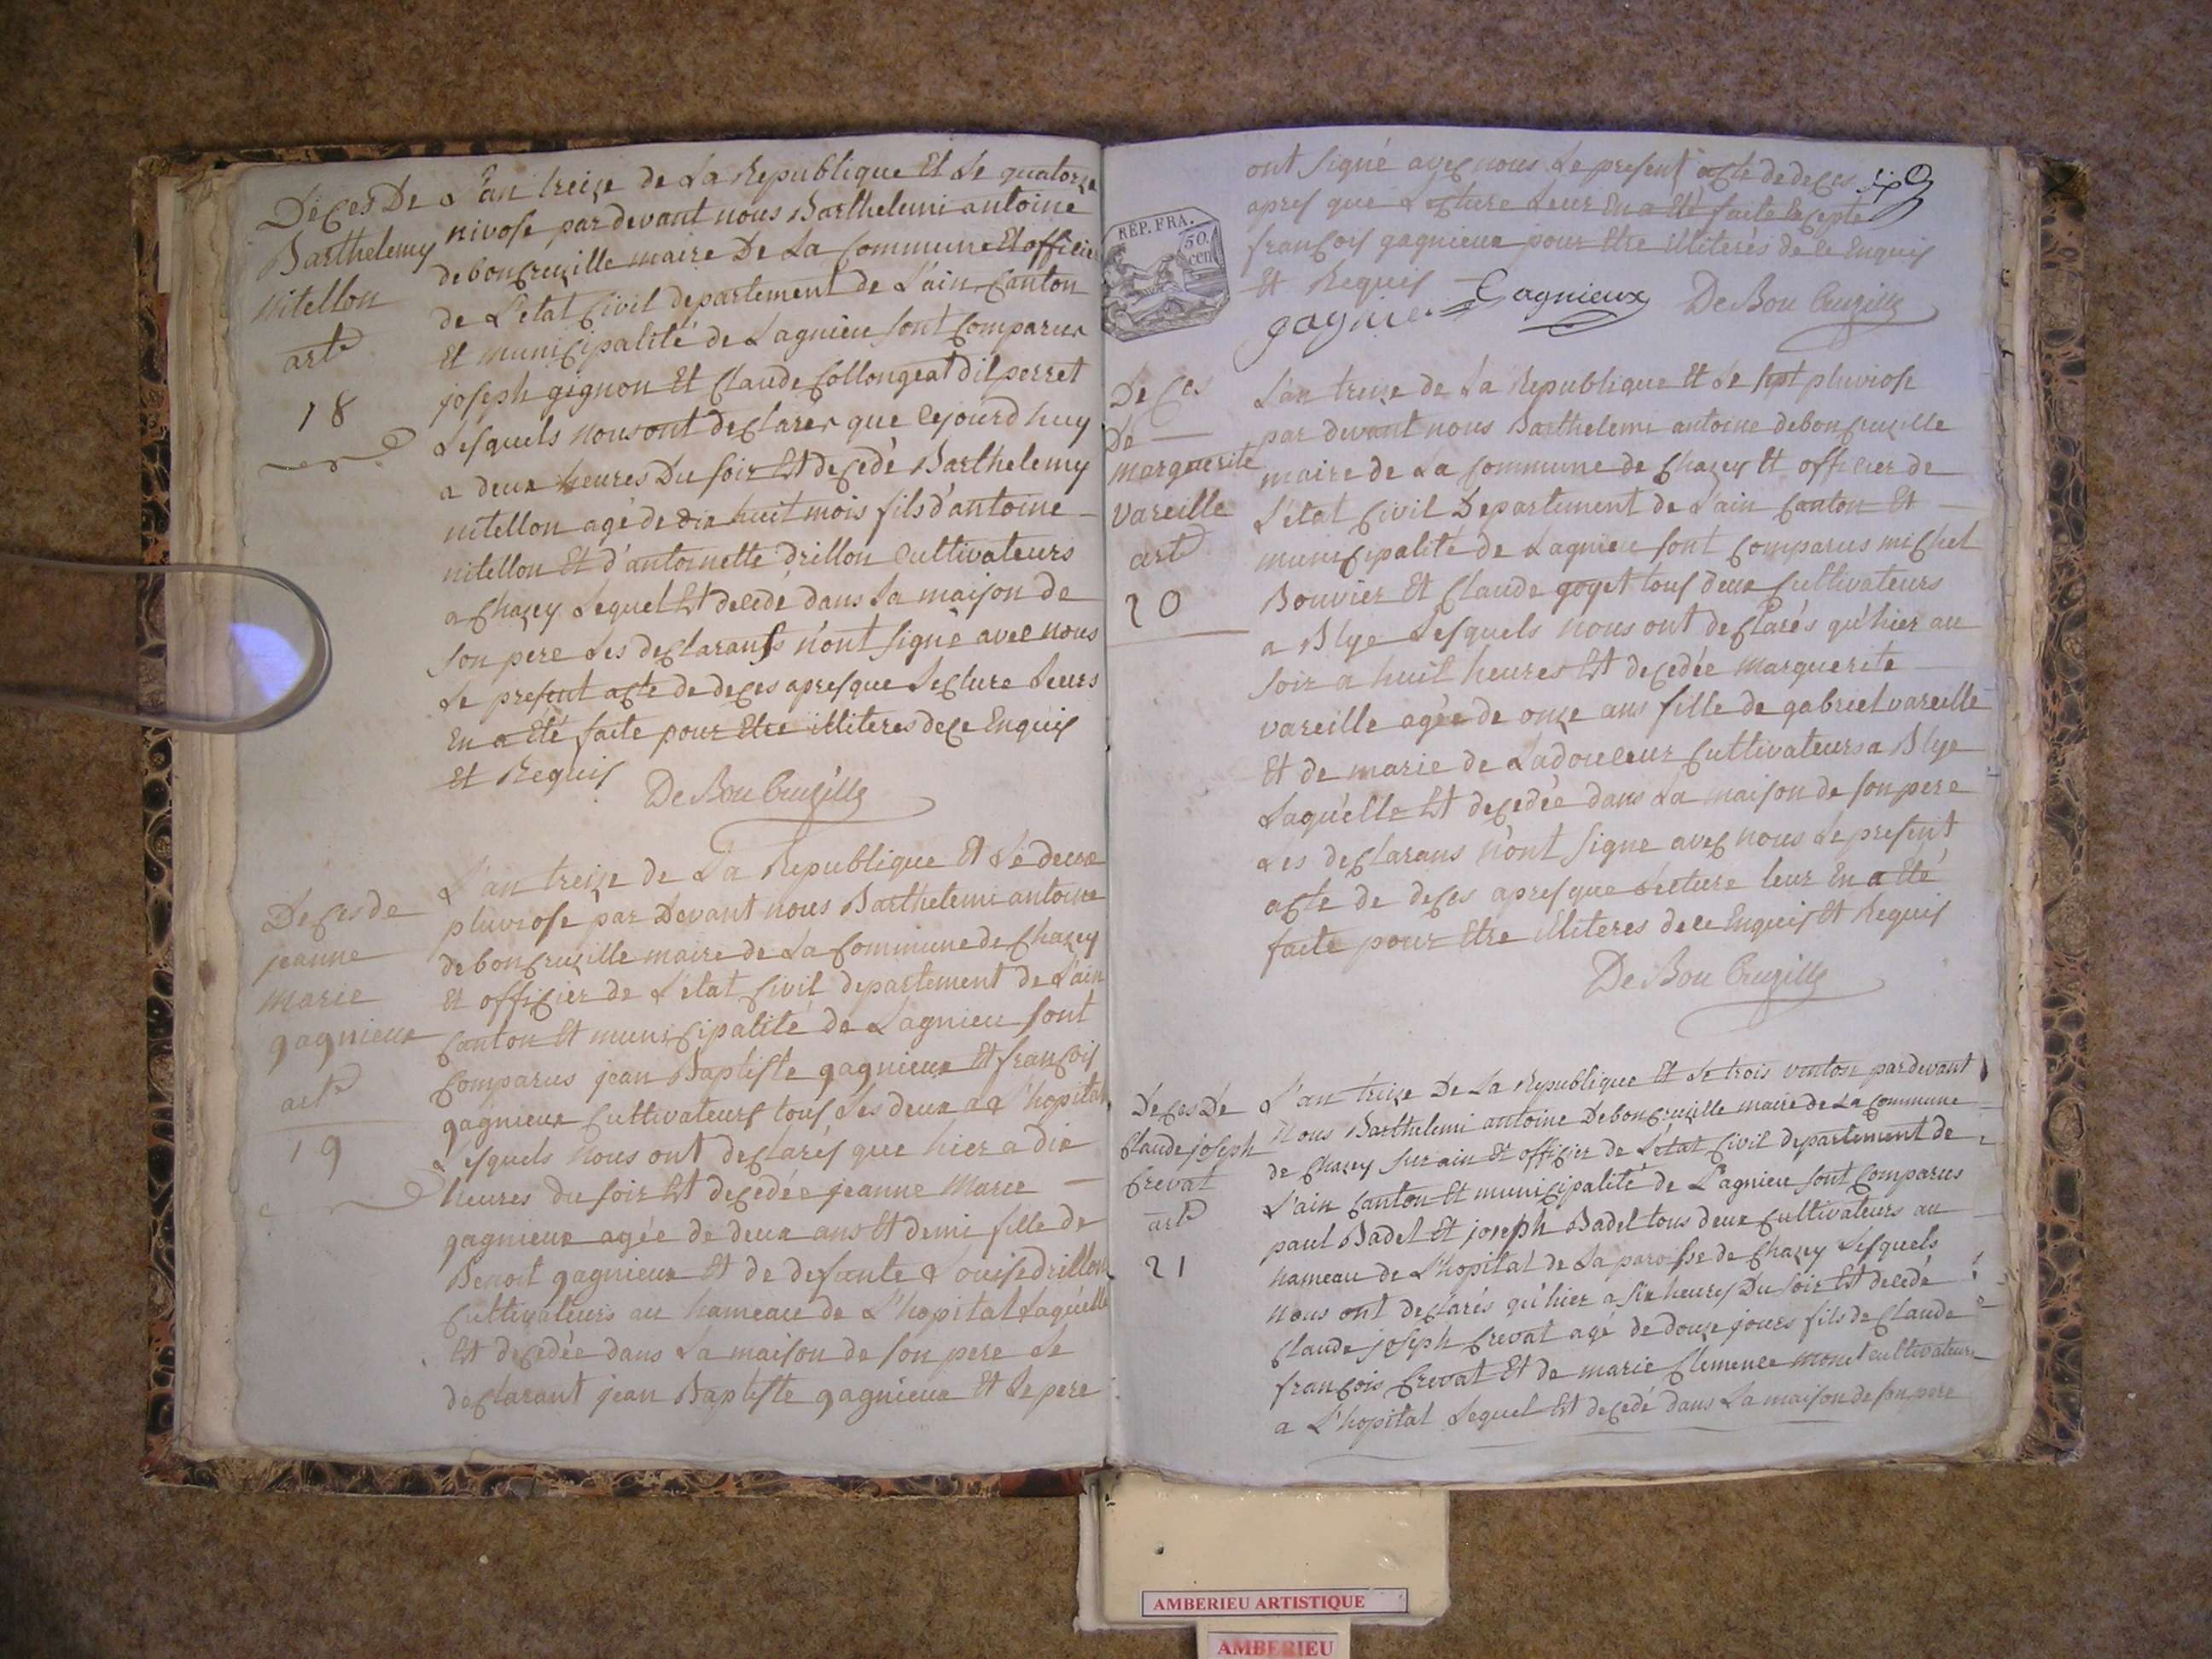 Déces De
Barthelemy
nitellon
art
18
L'an treize de La Republique Et Le quatorze
nivose par devant nous Barthelemi antoine
deboncruzille maire De La Commune Et officier
de L'etat Civil departement de L'ain Canton
Et municipalité de Lagnieu sont Comparus
joseph gignon Et Claude Collongeat dit perret
Lesquels nous ont declarer que Cejourd huy
a deux heures Du soir Est decedé Barthelemy
nitellon agé de dix huit mois fils d'antoine
nitellon Et d'antoinette drillon Cultivateurs
a Chazey Lequel Est decedé dans La maison de
son pere Les declarants n'ont signé avec nous
Le present acte de deces apres que Lecture Leurs
En a Eté faite pour Etre illiteres de Ce Enquis
Et Requis
De Bon Cruzille
Deces de
jeanne
marie
gagnieux
art
19
L'an treize de La Republique Et Le deux
pluviose par Devant nous Barthelemi antoine
deboncruzille maire de La Commune de Chazey
Et officier de L'etat Civil departement de L'ain
Canton Et municipalité de Lagnieu sont
Comparus jean Baptiste gagnieux Et françois
gagnieux Cultivateurs tous Les deux a L'hopital
Lesquels nous ont declarés que hier a dix
heures du soir Est decedée jeanne Marie
gagnieux agée de deux ans Et demi fille de
Benoit gagnieux Et de defunte Louise drillon
Cultivateurs au hameau de L'hopital Laquelle
Est decedée dans La maison de son pere Le
declarant jean Baptiste gagnieux Et Le pere
ont signé avec nous Le present acte de deces
apres que Lecture Leur En a Eté faite Excepté
françois gagnieux pour Etre illiterés de Ce Enquis
Et Requis Gagnieux De Bon Cruzille
gagnie
RÉP. FRA.
50.
cen
Deces
De
marguerite
vareille
art
20
L'an treize de La Republique Et Le sept pluviose
par devant nous Barthelemi antoine deboncruzille
maire de La Commune de Chazey Et officier de
L'état Civil Departement de L'ain Canton Et
municipalité de Lagnieu sont Comparus michel
Bouvier Et Claude goyet tous deux Cultivateurs
a Blye Lesquels nous ont declarés qu'hier au
soir a huit heures Est decedée Marguerite
vareille agée de onze ans fille de gabriel vareille
Et de marie de Ladouceur Cultivateurs a Blye
Laquelle Est decedée dans La maison de son pere
Les declarans n'ont signe avec nous Le present
acte de deces apres que Lecture leur En a Eté
faite pour Etre illiteres de ce Enquis Et Requis
De Bon Cruzille
Deces De
Claude joseph
Crevat
art
21
L'an treize De La Republique Et Le trois ventose par devant
nous Barthelemi antoine Deboncruzille maire de La Commune
de Chazey sur ain Et officier de L'état Civil departement de
L'ain Canton Et municipalité de Lagnieu sont Comparus
paul Badel Et joseph Badel tous deux Cultivateurs au
hameau de L'hopital de La paroisse de Chazey Lesquels
nous ont declarés qu'hier a six heures Du soir Est decedé
Claude joseph Crevat agé de douze jours fils de Claude
françois Crevat Et de marie Clemence monet cultivateurs
a L'hopital Lequel Est decedé dans La maison de son pere
AMBERIEU ARTISTIQUE
AMBERIEU